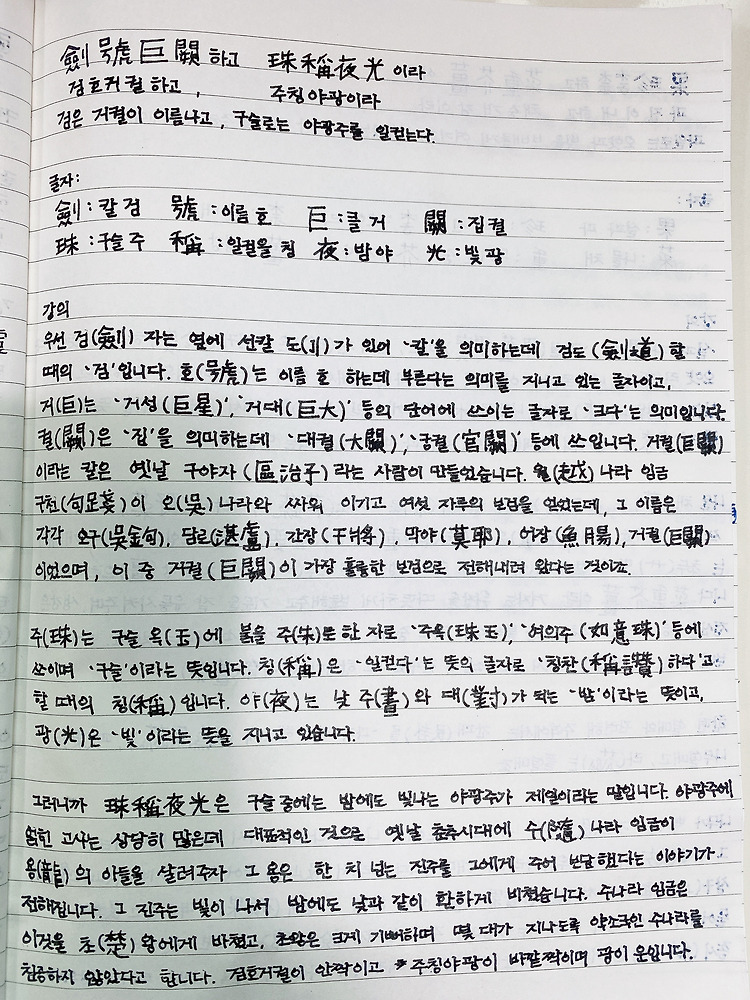 劍號巨闕하고 珠稱夜光이라
검호거궐하고, 주칭야광이라
검은 거궐이 이름나고, 구슬로는 야광주를 일컫는다.
글자:
劍:칼 검 號:이름 호 巨:클 거 闕:집 궐
珠:구슬 주 稱:일컬을 칭 夜:밤 야 光:빛 광
강의
우선 검(劍) 자는 옆에 선칼 도(刂)가 있어 '칼'을 의미하는데 검도(劍道)할
때의 '검'입니다. 호(號)는 이름 호 하는데 부른다는 의미를 지니고 있는 글자이고,
거(巨)는 '거성(巨星)', '거대(巨大)' 등의 단어에 쓰이는 글자로 '크다'는 의미입니다.
궐(闕)은 '집'을 의미하는데 '대궐(大闕)', '궁궐(官闕)' 등에 쓰입니다. 거궐(巨闕)
이라는 칼은 옛날 구야자(區治子)라는 사람이 만들었습니다. 월(越)나라 임금
구천(句踐)이 오(吳)나라와 싸워 이기고 여섯 자루의 보검을 얻었는데, 그 이름은
각각 오구(吳金句), 담로(湛盧), 간장(干將), 막야(莫耶), 어장(魚腸), 거궐(巨闕)
이었으며, 이 중 거궐(巨闕)이 가장 훌륭한 보검으로 전해내려 왔다는 것이죠.
주(珠)는 구슬 옥(玉)에 붉을 주(朱)로 한 자로 '주옥(珠玉)', '여의주(如意珠)' 등에
쓰이며 '구슬'이라는 뜻입니다. 칭(稱)은 '일컫다'는 뜻의 글자로 '칭찬(稱讚)하다'고
할 때의 칭(稱)입니다. 야(夜)는 낮 주(晝)와 대(對)가 되는 '밤'이라는 뜻이고,
광(光)은 '빛'이라는 뜻을 지니고 있습니다.
그러니까 珠稱夜光은 구슬 중에는 밤에도 빛나는 야광주가 제일이라는 말입니다. 야광주에
얽힌 고사는 상당히 많은데 대표적인 것으로 옛날 춘추시대에 수(隨)나라 임금이
용(龍)의 아들을 살려주자 그 용은 한 치 넘는 진주를 그에게 주어 보답했다는 이야기가
전해집니다. 그 진주는 빛이 나서 밤에도 낮과 같이 환하게 비쳤습니다. 수나라 임금은
이것을 초(楚)왕에게 바쳤고, 초왕은 크게 기뻐하며 몇 대가 지나도록 약소국인 수나라를
침공하지 않았다고 합니다. 검호거궐이 안짝이고 주칭야광이 바깥짝이며 광이 운입니다.